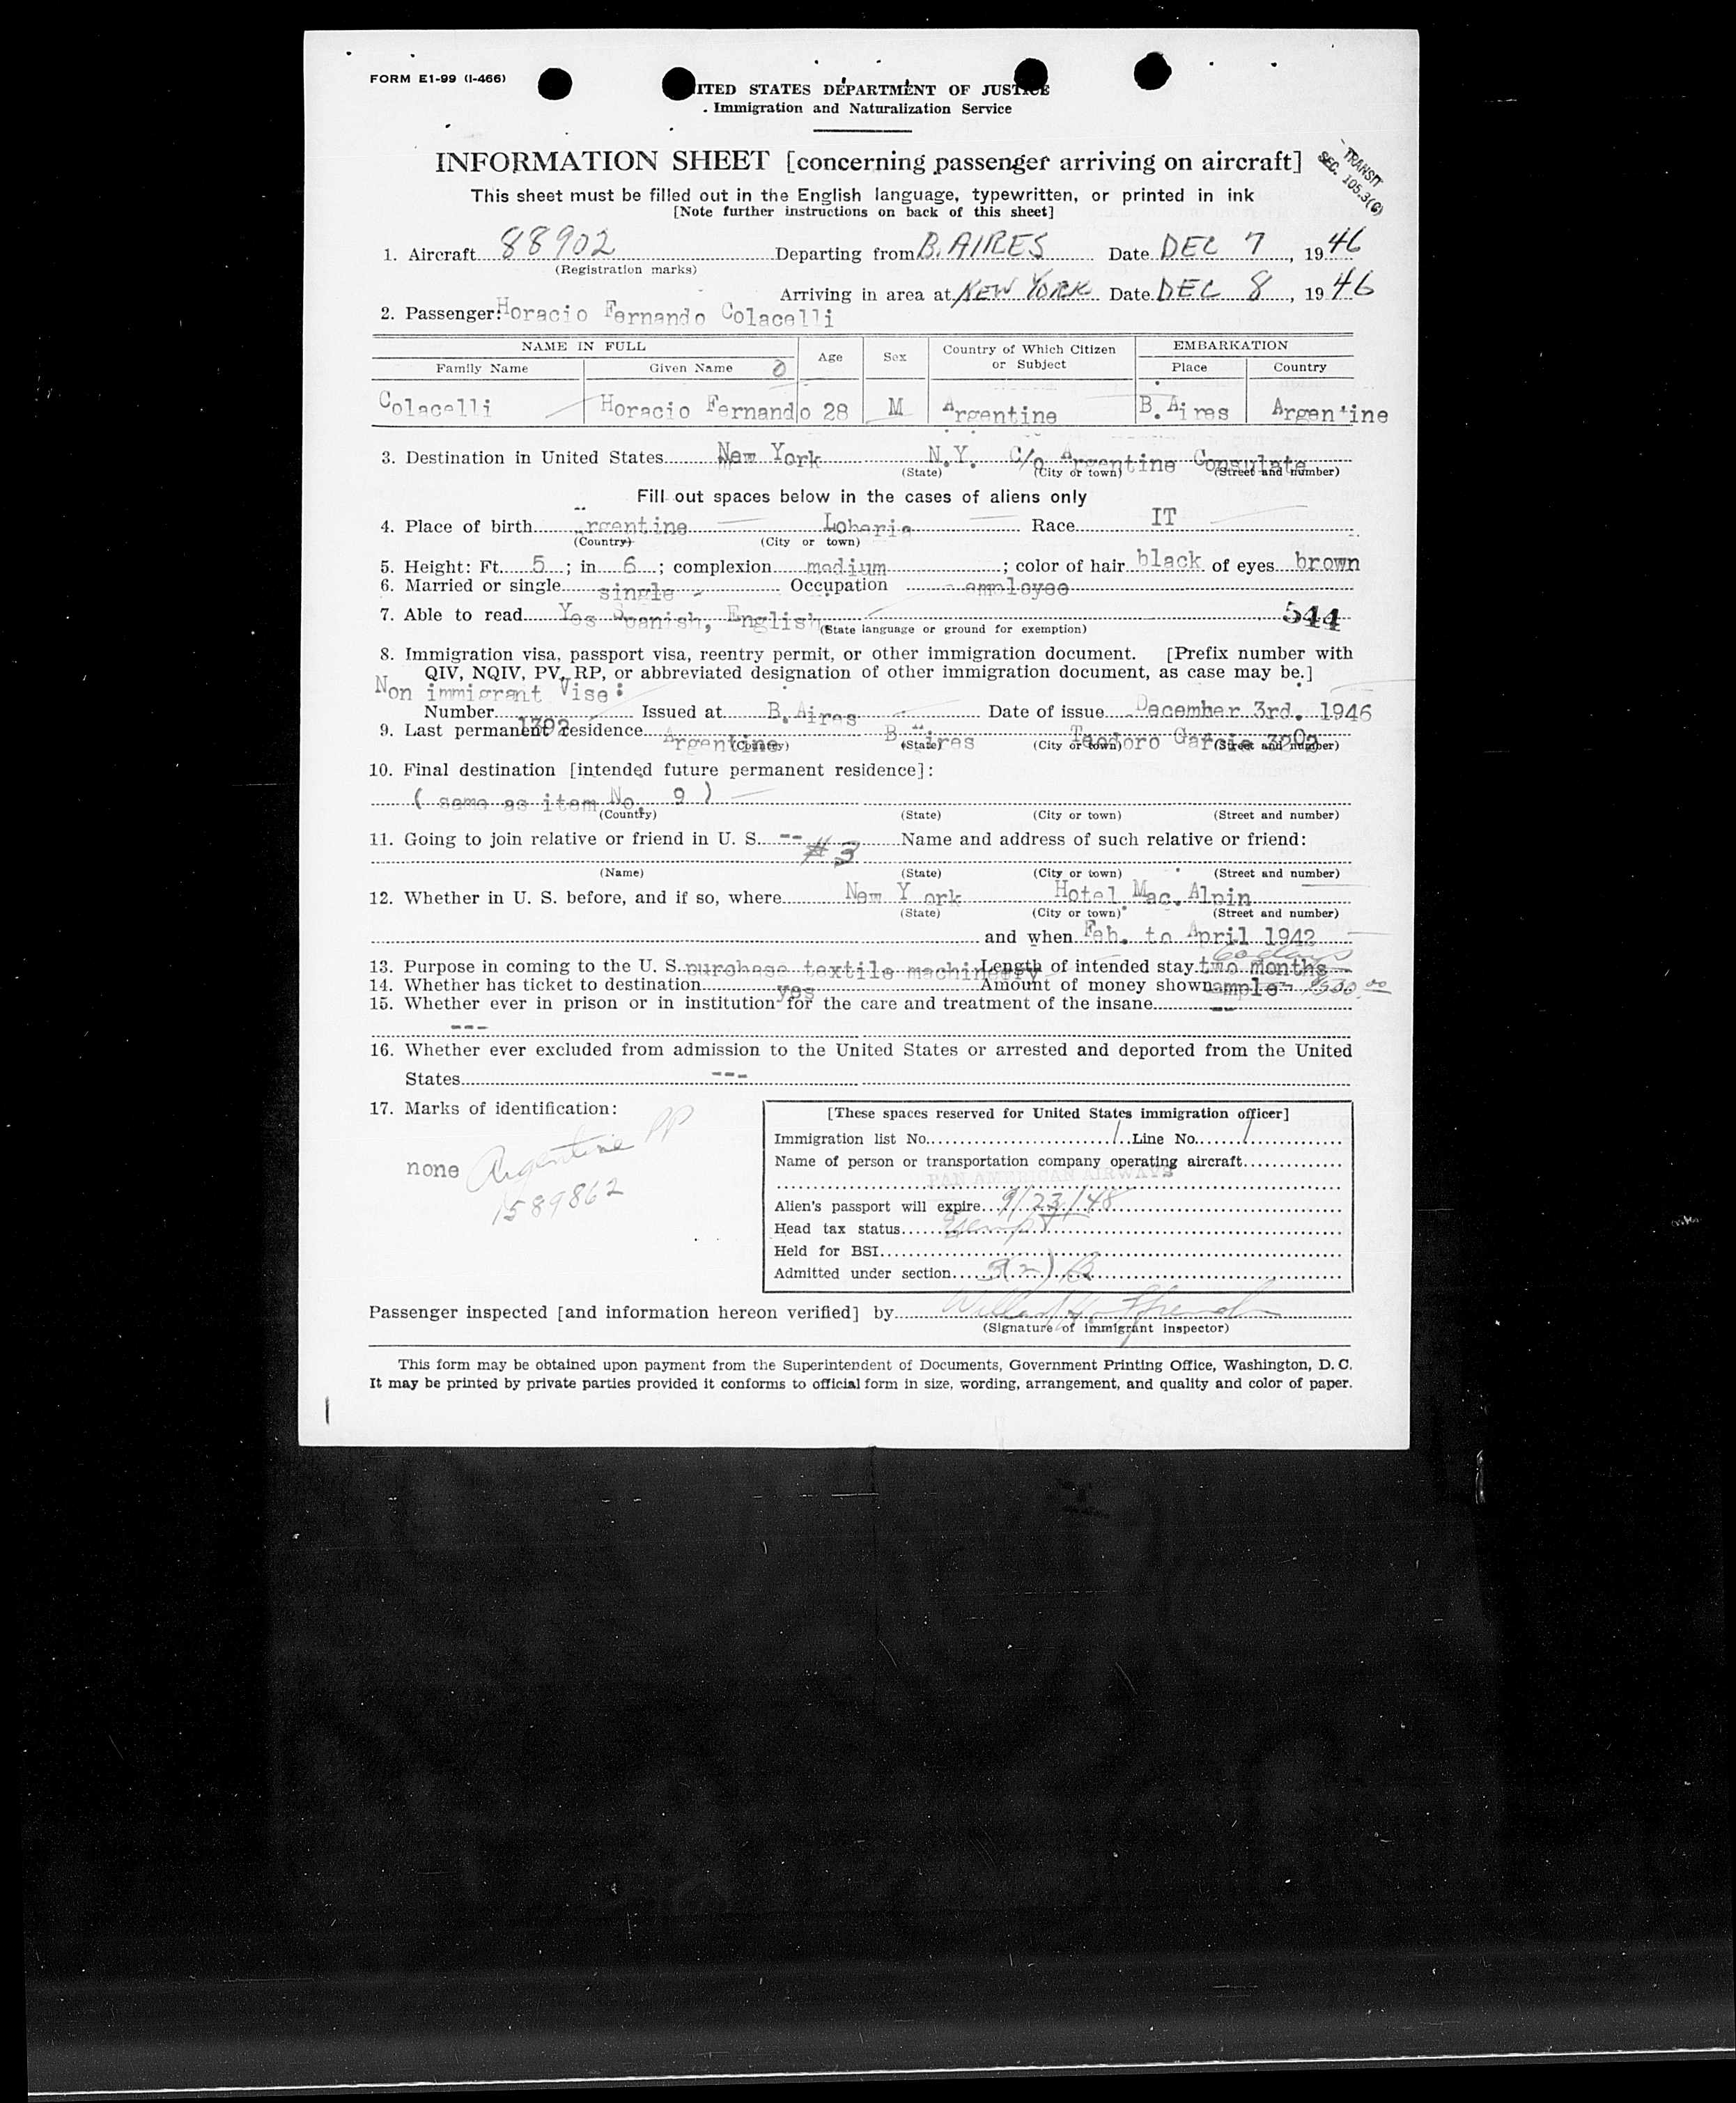 FORM E1-99 (I-466)
ITED STATES DEPARTMENT OF JUSTICE
Immigration and Naturalization Service
INFORMATION SHEET [concerning passenger arriving on aircraft]
TRANSIT
SEC. 105.3(6)
This sheet must be filled out in the English language, typewritten, or printed in ink
[Note further instructions on back of this sheet]
1. Aircraft 88902 Departing from B. AIRES Date DEC 7, 1946
(Registration marks)
Arriving in area at NEW YORK Date DEC 8, 1946
2. Passenger: Horacio Fernando Colacelli
NAME IN FULL Age Sex Country of Which Citizen or Subject EMBARKATION
Family Name Given Name Place Country
Colacelli Horacio Fernando 28 M Argentine B. Aires Argentine
3. Destination in United States New York N.Y. C/o Argentine Consulate
(State) (City or town) (Street and number)
Fill out spaces below in the cases of aliens only
4. Place of birth Argentine Loberia Race IT
(Country) (City or town)
5. Height: Ft. 5; in. 6; complexion medium; color of hair black of eyes brown
6. Married or single single Occupation employee
7. Able to read Yes Spanish, English
544
(State language or ground for exemption)
8. Immigration visa, passport visa, reentry permit, or other immigration document. [Prefix number with
QIV, NQIV, PV, RP, or abbreviated designation of other immigration document, as case may be.]
Non immigrant Vise:
Number 1392 Issued at B. Aires Date of issue December 3rd. 1946
9. Last permanent residence Argentine B. Aires Teodoro Garcia 3202
(Country) (State) (City or town) (Street and number)
10. Final destination [intended future permanent residece]:
( same as item No. 9 )
(Country) (State) (City or town) (Street and number)
11. Going to join relative or friend in U. S. -- #3 Name and address of such relative or friend:
(Name) (State) (City or town) (Street and number)
12. Whether in U. S. before, and if so, where New York Hotel Mac. Alpin
(State) (City or town) (Street and number)
and when Feb. to April 1942
60 days
13. Purpose in coming to the U. S. purchase textile machinery Length of intended stay two months
14. Whether has ticket to destination yes Amount of money shown ample
15. Whether ever in prison or in institution for the care and treatment of the insane --
---
16. Whether ever excluded from admission to the United States or arrested and deported from the United
States ---
17. Marks of identification:
none Argentine PP
1589862
[These spaces reserved for United States immigration officer]
Immigration list No. 1 Line No. 1
Name of person or transportation company operating aircraft
PAN AMERICAN AIRWAYS
Alien's passport will expire 9/23/48
Head tax status Exempt
Held for BSI
Admitted under section 3(2) B
Passenger inspected [and information hereon verified] by
(Signature of immigrant inspector)
This form may be obtained upon payment from the Superintendent of Documents, Government Printing Office, Washington, D. C.
It may be printed by private parties provided it conforms to official form in size, wording, arrangement, and quality and color of paper.